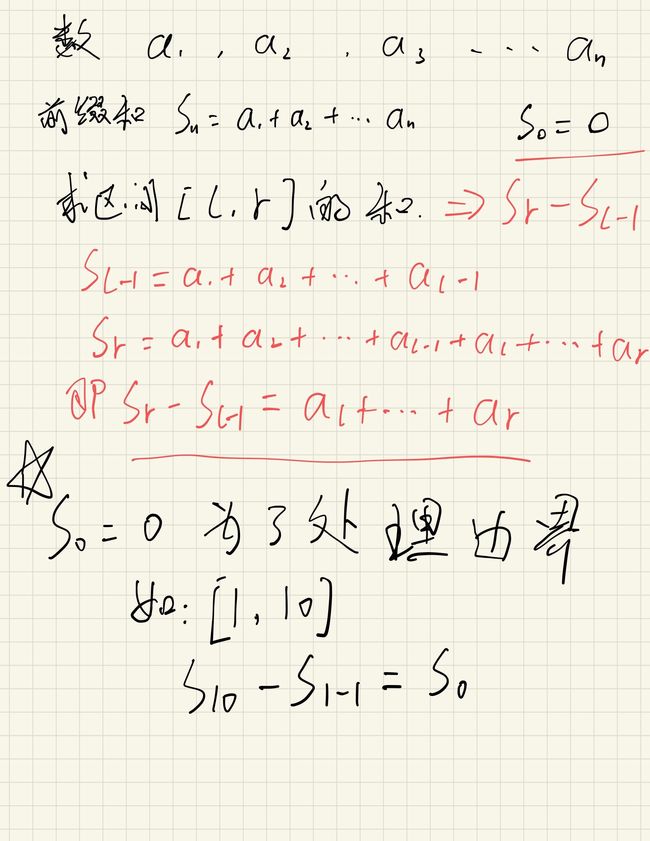 数 a₁ , a₂ , a₃ ---- aₙ
前缀和 Sₙ = a₁ + a₂ + ··· aₙ S₀ = 0
求区间 [l, r] 的和. ⇒ Sr - Sl-1
Sl-1 = a₁ + a₂ + ··· + al-1
Sr = a₁ + a₂ + ··· + al-1 + al + ··· + ar
即 Sr - Sl-1 = al + ··· + ar
☆
S₀ = 0 为了处理边界
如: [1, 10]
S10 - S1-1 = S₀